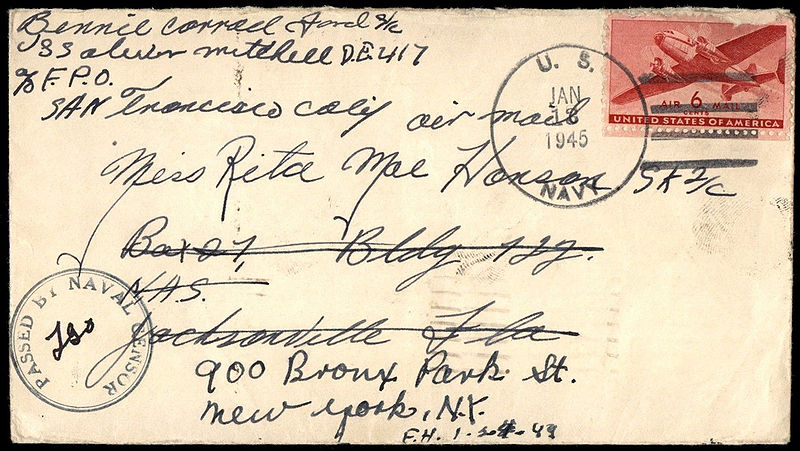 Bennie Carroll Ford S/c
USS Oliver Mitchell D.E. 417
c/o F.P.O.
SAN Francisco Calif
air mail
U. S.
JAN
18
1945
NAVY
AIR 6 MAIL
CENTS
UNITED STATES OF AMERICA
Miss Rita Mae Honson SK 2/c
Box 27, Bldg
N.A.S.
Jacksonville Fla
PASSED BY NAVAL CENSOR
900 Bronx Park St.
New York, N.Y.
F.H. 1-24-49